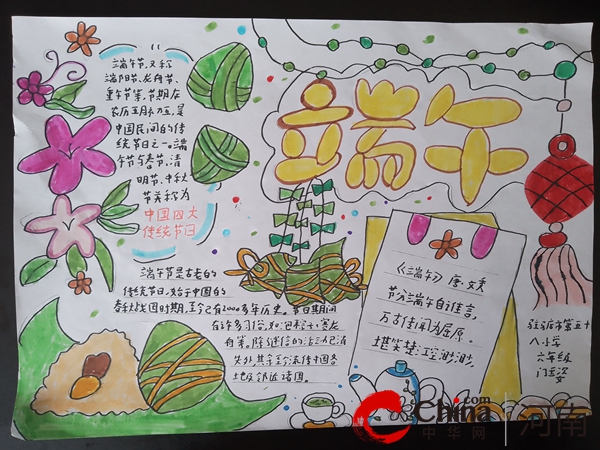 端午
端午节,又称
端阳节、龙舟节、
重午节等,节期在
农历五月初五,是
中国民间的传
统节日之一。端
午节与春节、清
明节、中秋
节并称为
中国四大
传统节日
端午节是古老的
传统节日,始于中国的
春秋战国时期,至今已有2000多年历史。节日期间
有许多习俗,如:包粽子、赛龙
舟等,除迷信的活动已消
失外,其余至今流传中国各
地及邻近诸国。
《端午》唐·文秀
节分端午自谁言,
万古传闻为屈原。
堪笑楚江空渺渺,
驻马店市第五十
八小学
六年级
China.com
中华网
河南